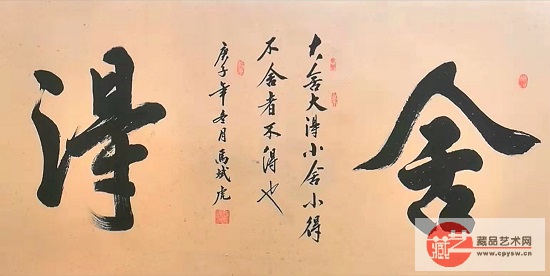 舍
大舍大得小舍小得
不舍者不得也
庚子年月馬斌虎
得
藏艺
藏品艺术网
www.cpysw.cn